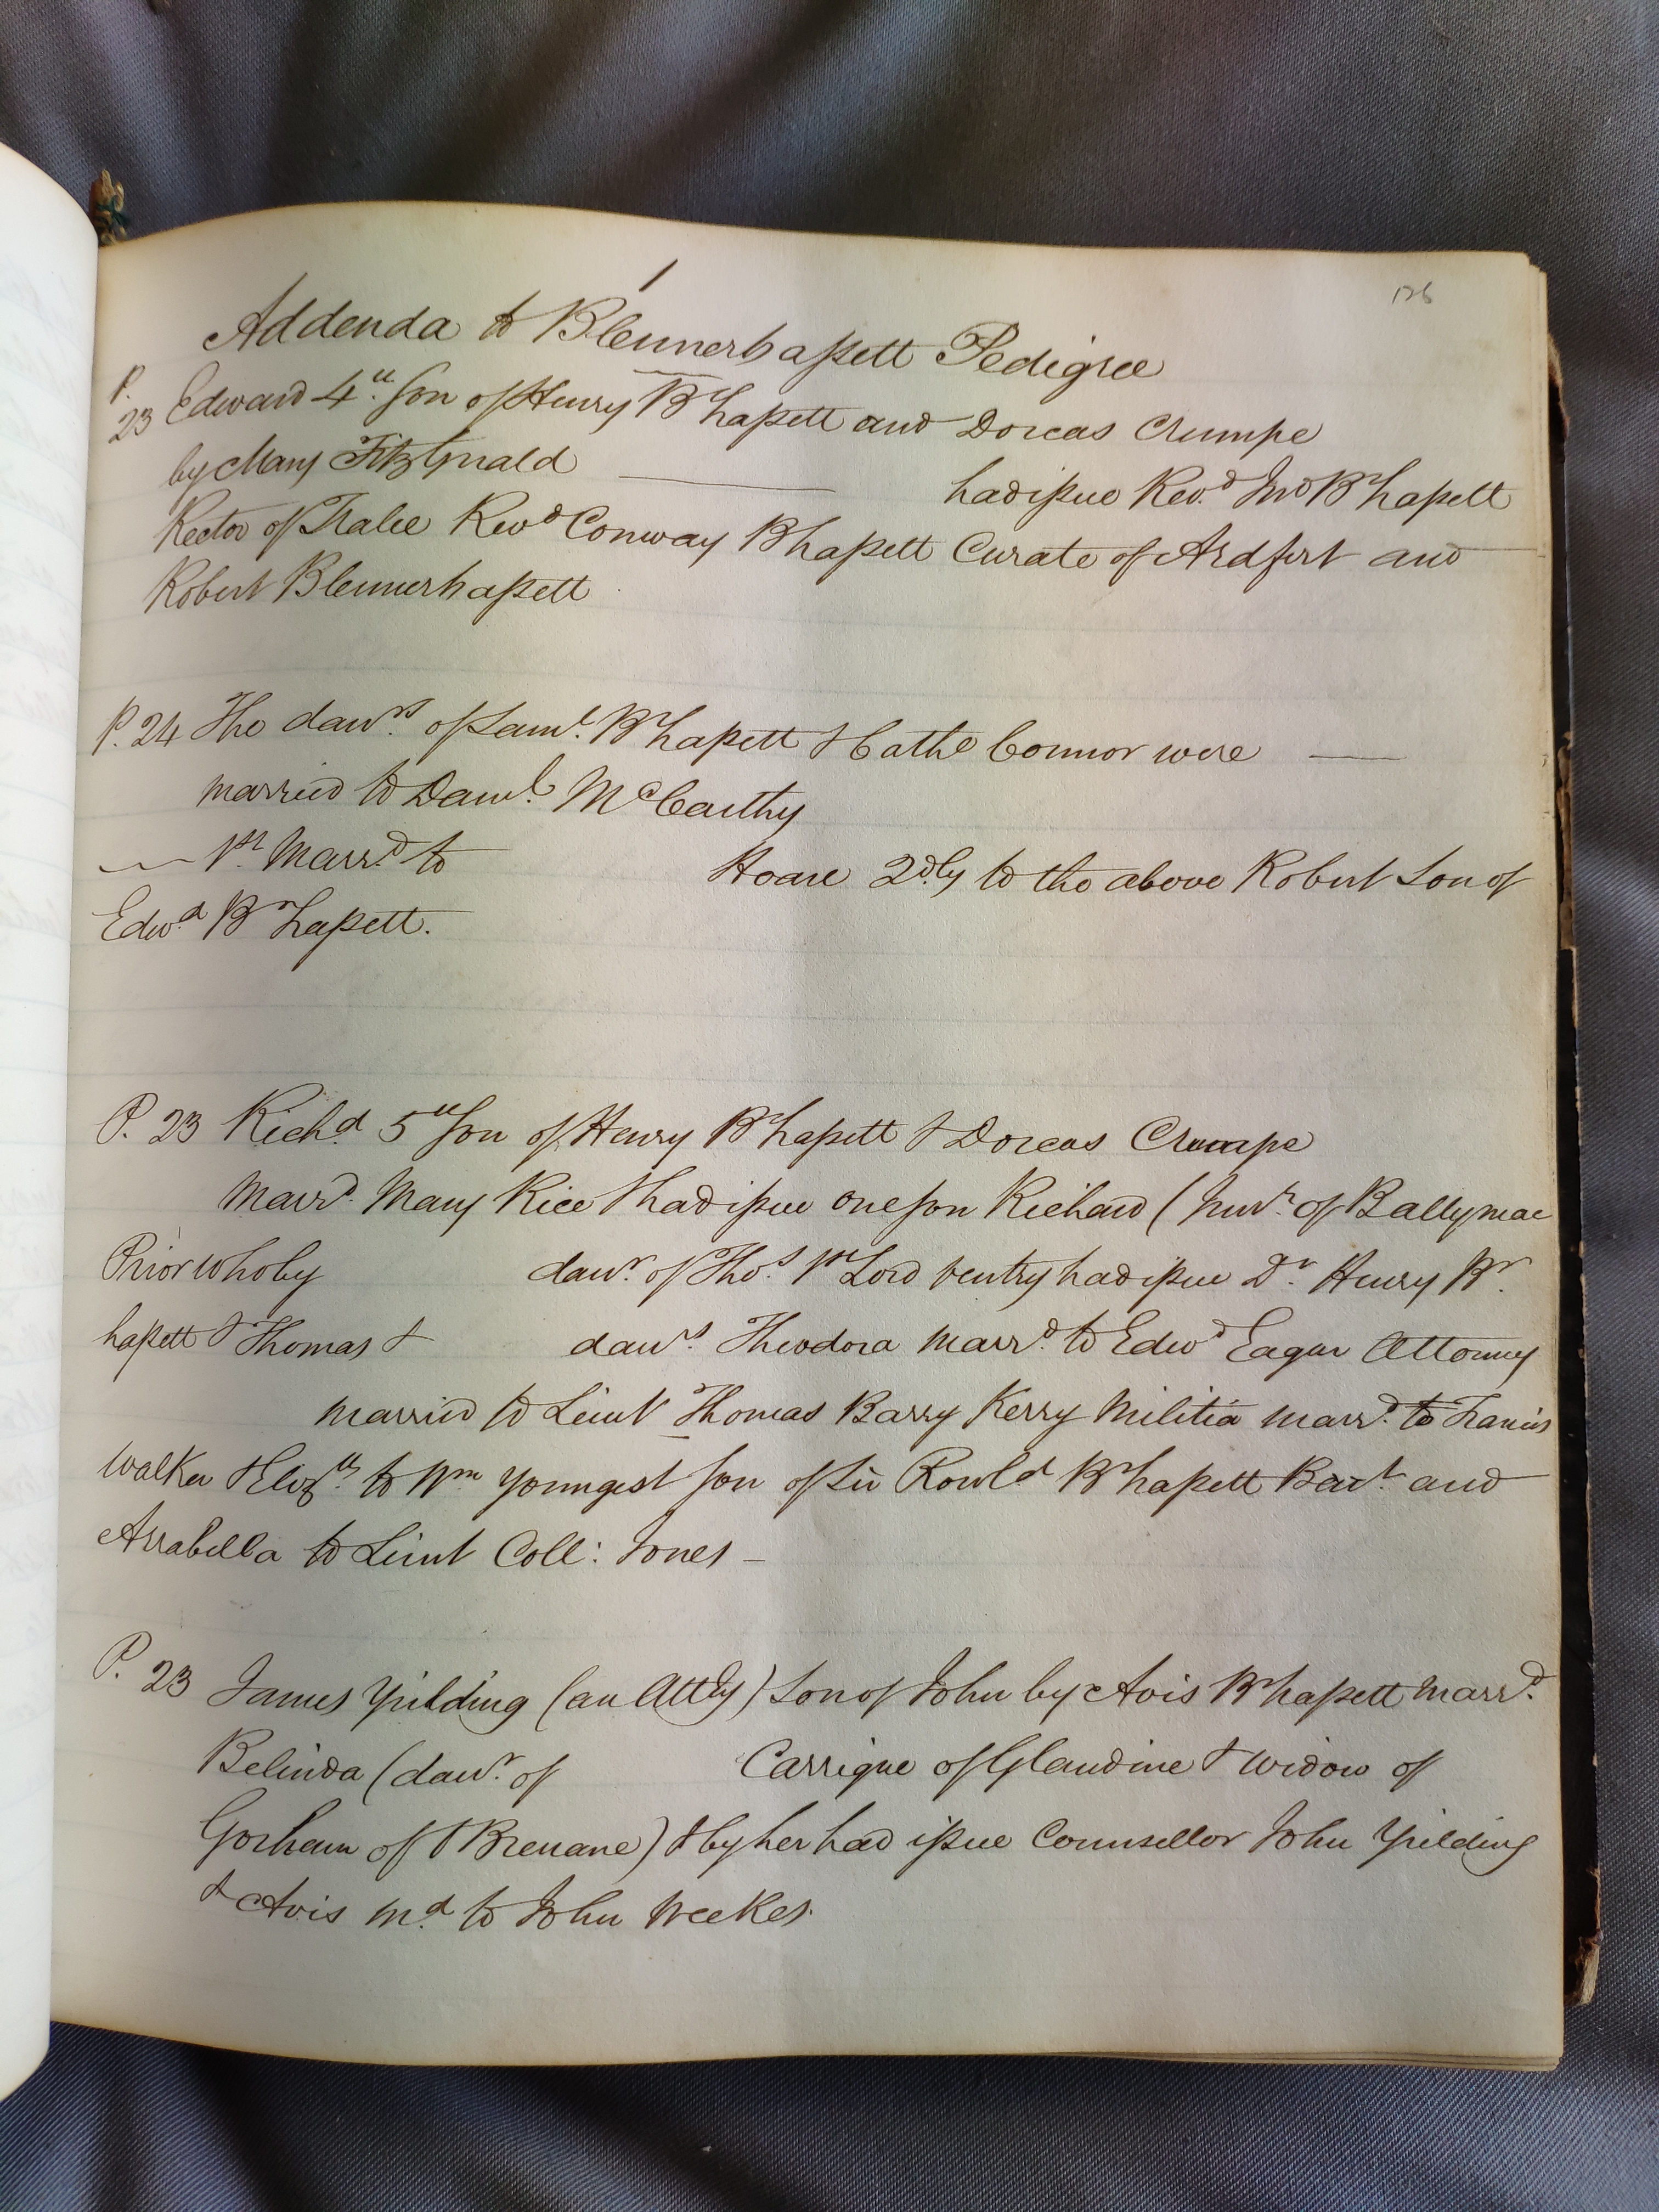 1
126
Addenda to Blennerhassett Pedigree
P. 23 Edward 4th Son of Henry Br hassett and Dorcas Crumpe
by Mary FitzGerald — had issue Revd Jno Br hassett
Rector of Tralee Revd Conway Bhassett Curate of Ardfert and
Robert Blennerhassett
P. 24 The dawrs of Saml Br hassett & Cathe Connor were —
married to Danl McCarthy
— 1st Marrd to Hoare 2dly to the above Robert Son of
Edwd Br hassett.
P. 23 Richd 5th Son of Henry Br hassett & Dorcas Crumpe
Marrd Mary Rice & had issue one son Richard ( of Ballymac
Prior who by dawr of Thos 1st Lord Ventry had issue Dr Henry Br
hassett & Thomas & dawrs Theodora marrd to Edwd Eagar Attorney
married to Lieut Thomas Barry Kerry Militia marrd to Francis
Walker & Elizth to Wm youngest son of Sir Rowld Br hassett Bart and
Arrabella to Lieut Coll: Jones —
P. 23 James Yielding (an Atty) Son of John by Avis Br hassett Marrd
Belinda (dawr of Carrique of Glandine & widow of
Gorham of Brenane) & by her had issue Counsellor John Yielding
& Avis md to John Weekes.